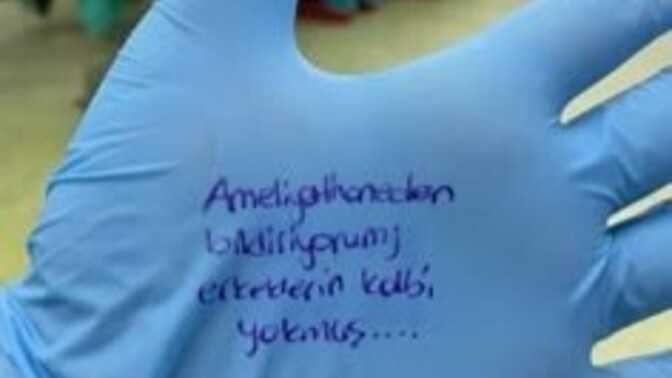 Ameliyathaneden
bildiriyorum;
erkeklerin kalbi
yokmuş....